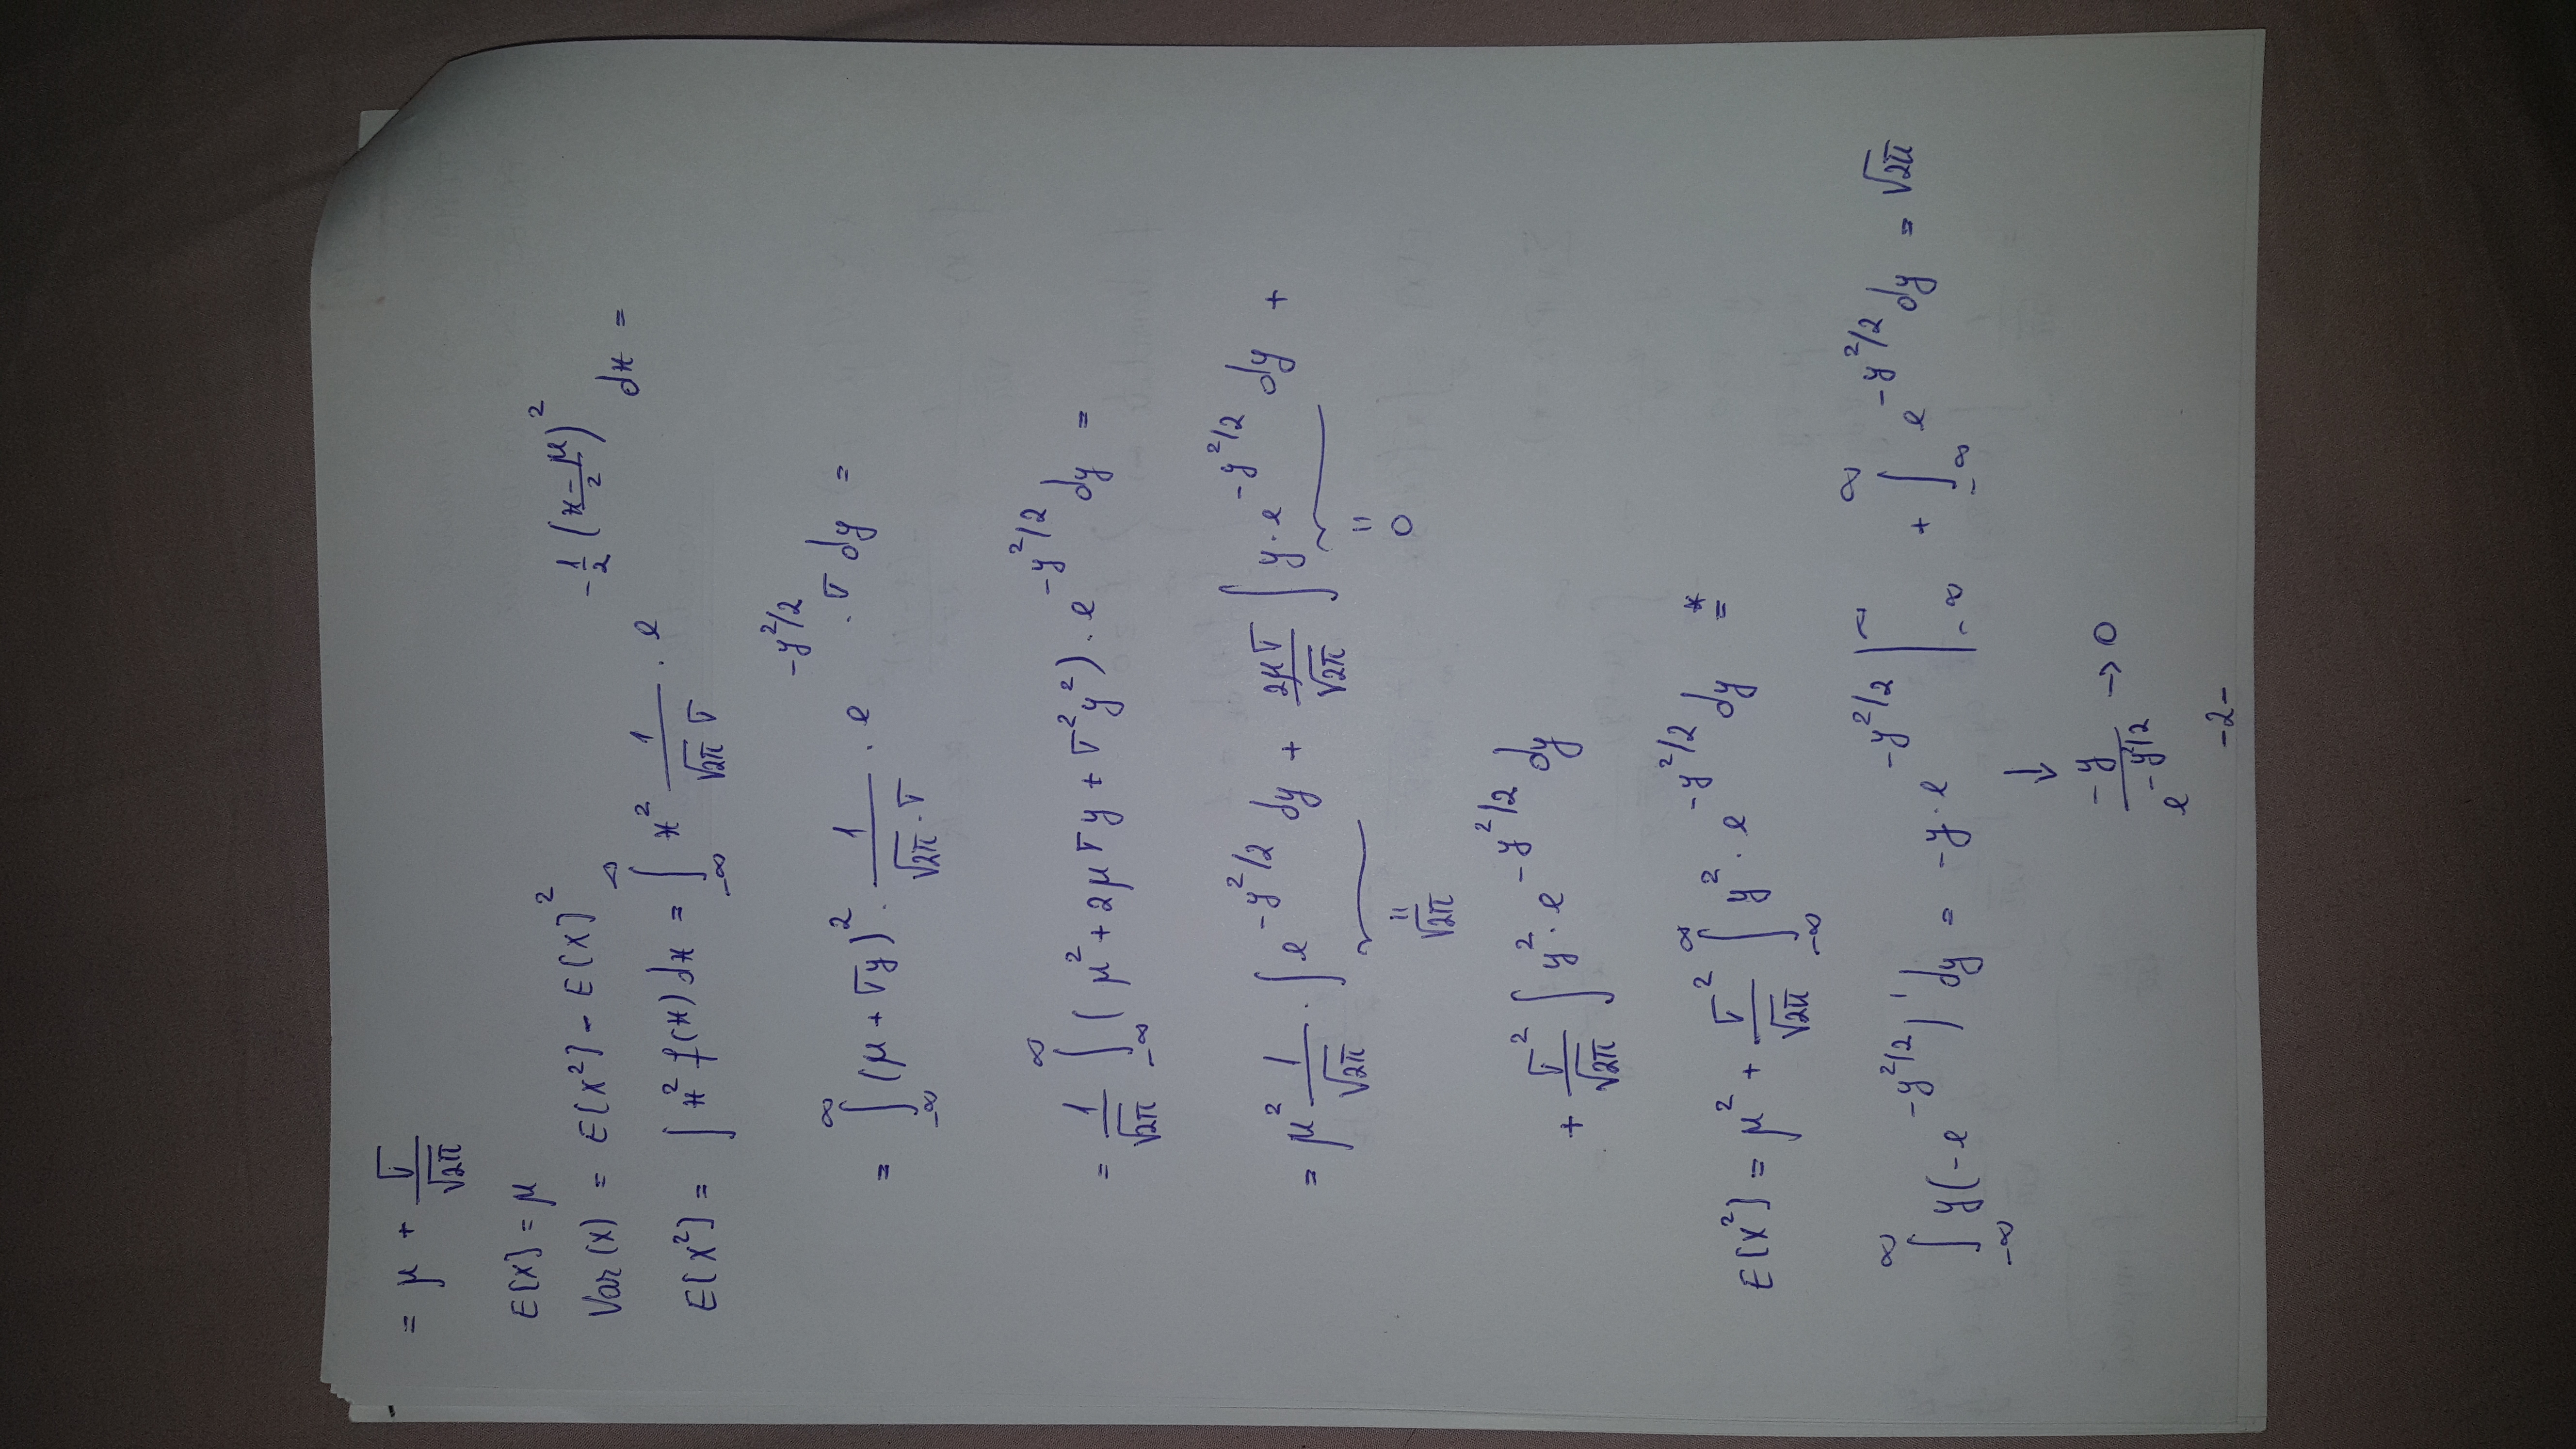 = μ + σ/√2π
E[X] = μ
Var(X) = E[X²] - E[X]²
E[X²] = ∫ x² f(x) dx = ∫_{-∞}^{∞} x² 1/(√2π σ) · e^{-1/2 ((x-μ)/2)²} dx =
= ∫_{-∞}^{∞} (μ + σy)² · 1/(√2π · σ) · e^{-y²/2} · σ dy =
= 1/√2π ∫_{-∞}^{∞} (μ² + 2μσy + σ²y²) · e^{-y²/2} dy =
= μ² 1/√2π · ∫ e^{-y²/2} dy + 2μσ/√2π ∫ y · e^{-y²/2} dy +
= √2π = 0
+ σ²/√2π ∫ y² · e^{-y²/2} dy
E[X²] = μ² + σ²/√2π ∫_{-∞}^{∞} y² · e^{-y²/2} dy =*
∫_{-∞}^{∞} y(-e^{-y²/2})' dy = -y · e^{-y²/2} |_{-∞}^{∞} + ∫_{-∞}^{∞} e^{-y²/2} dy = √2π
↓
-y/e^{-y²/2} → 0
-2-